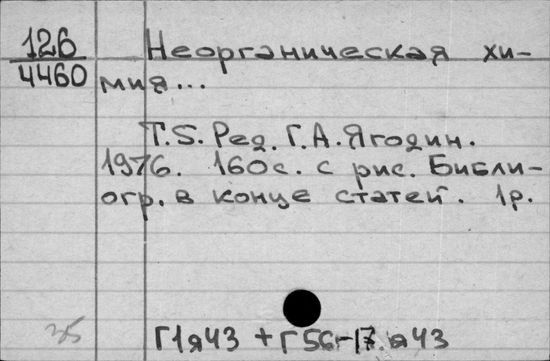 126 Неорганическая хи-
4460 мия...
Т.5. Ред. Г.А.Ягодин.
1976. 160с. с рис. Библи-
огр. в конце статей. 1р.
Г1я43 + Г56-17.я43